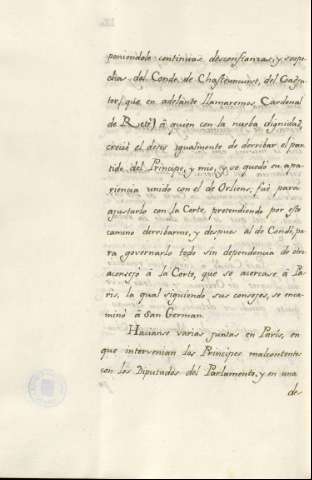 poniendole continuas desconfianzas, y sospe
chas del Conde de Chasteuneuf, del Coadju
tor (que en adelante llamaremos Cardenal
de Retz) à quien con la nueba dignidad,
creciò el deseo igualmente de derribar el par
tido del Principe, y mio, y se quedò en apa
riencia unido con el de Orliens, fuè para
ajustarlo con la Corte, pretendiendo por este
camino derribarme, y despues al de Condè, pa
ra governarlo todo sin dependencia de otro
aconsejò à la Corte, que se acercase à Pa
ris, la qual siguiendo sus consejos, se enca
minò à San German.
Hacianse varias juntas en Paris, en
que intervenian los Principes malcontentos
con los Diputados del Parlamento, y en una
de